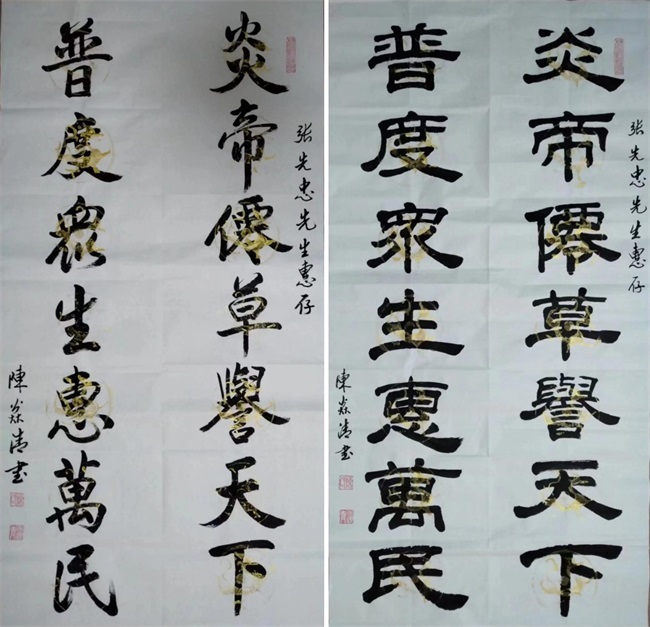 炎帝僊草譽天下
張先忠先生惠存
普度眾生惠萬民
陳焱清书
炎帝僊草譽天下
張先忠先生惠存
普度眾生惠萬民
陳焱清书